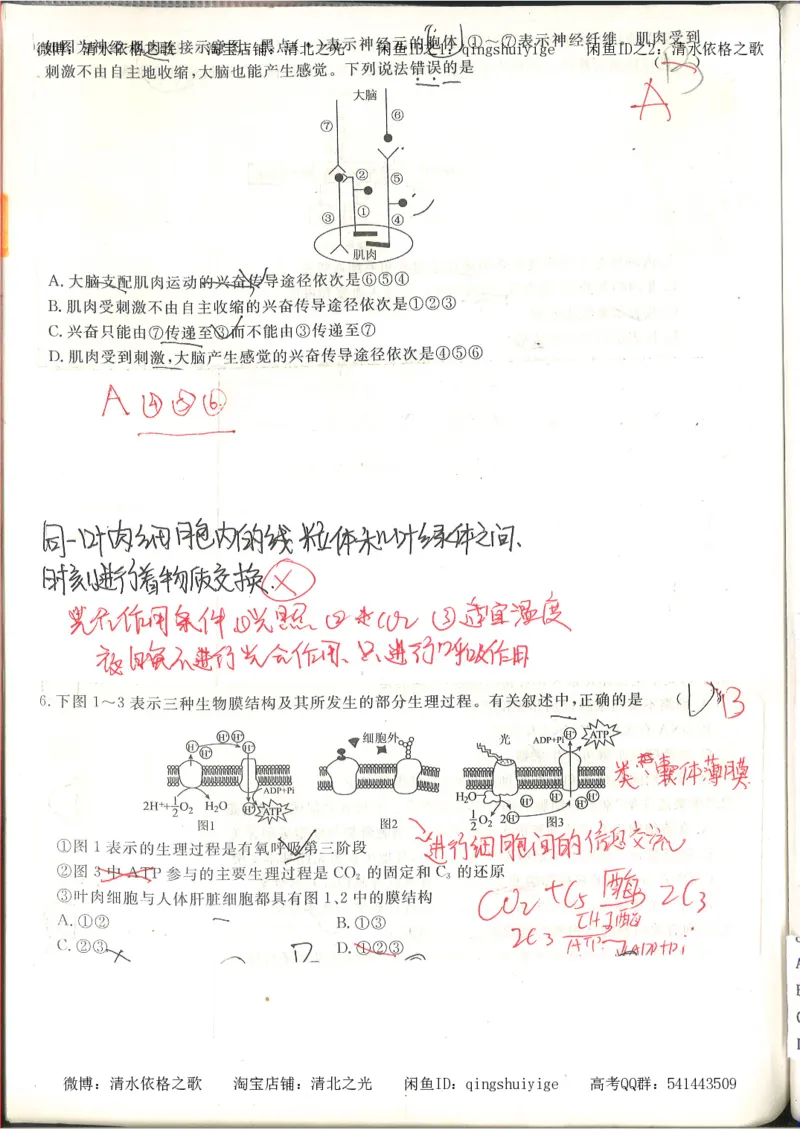 微博：清水依格之歌 淘宝店铺：清北之光 闲鱼ID之1：qingshuiyige 闲鱼ID之2：清水依格之歌
如图为神经-肌肉连接示意图。黑点(•)表示神经元的胞体,①～⑦表示神经纤维。肌肉受到
刺激不由自主地收缩,大脑也能产生感觉。下列说法错误的是 ( )
A
大脑
⑦ ⑥
② ⑤
③ ① ④
肌肉
A.大脑支配肌肉运动的兴奋传导途径依次是⑥⑤④
B.肌肉受刺激不由自主收缩的兴奋传导途径依次是①②③
C.兴奋只能由⑦传递至③而不能由③传递至⑦
D.肌肉受到刺激,大脑产生感觉的兴奋传导途径依次是④⑤⑥
A ④⑤⑥
同一叶肉细胞内的线粒体和叶绿体之间、
时刻进行着物质交换.×
光合作用条件 ①光照 ② CO2 ③适宜温度
夜间不进行光合作用、只进行呼吸作用
6.下图1～3表示三种生物膜结构及其所发生的部分生理过程。有关叙述中,正确的是 ( )
B
H⁺ H⁺ H⁺ H⁺ H⁺
ADP+Pi
2H⁺+½O₂ H₂O H⁺ ATP
图1
细胞外
图2
光 ADP+Pi H⁺ ATP
H₂O H⁺ H⁺ H⁺ H⁺
½O₂ 2H⁺
图3
类囊体薄膜
进行细胞间的信息交流
①图1表示的生理过程是有氧呼吸第三阶段
②图3中ATP参与的主要生理过程是CO₂的固定和C₃的还原
③叶肉细胞与人体肝脏细胞都具有图1、2中的膜结构
A.①② B.①③
C.②③ D.①②③
CO2+C5 酶 2C3
2C3 [H]酶
ATP ADP+Pi
微博：清水依格之歌 淘宝店铺：清北之光 闲鱼ID：qingshuiyige 高考QQ群：541443509